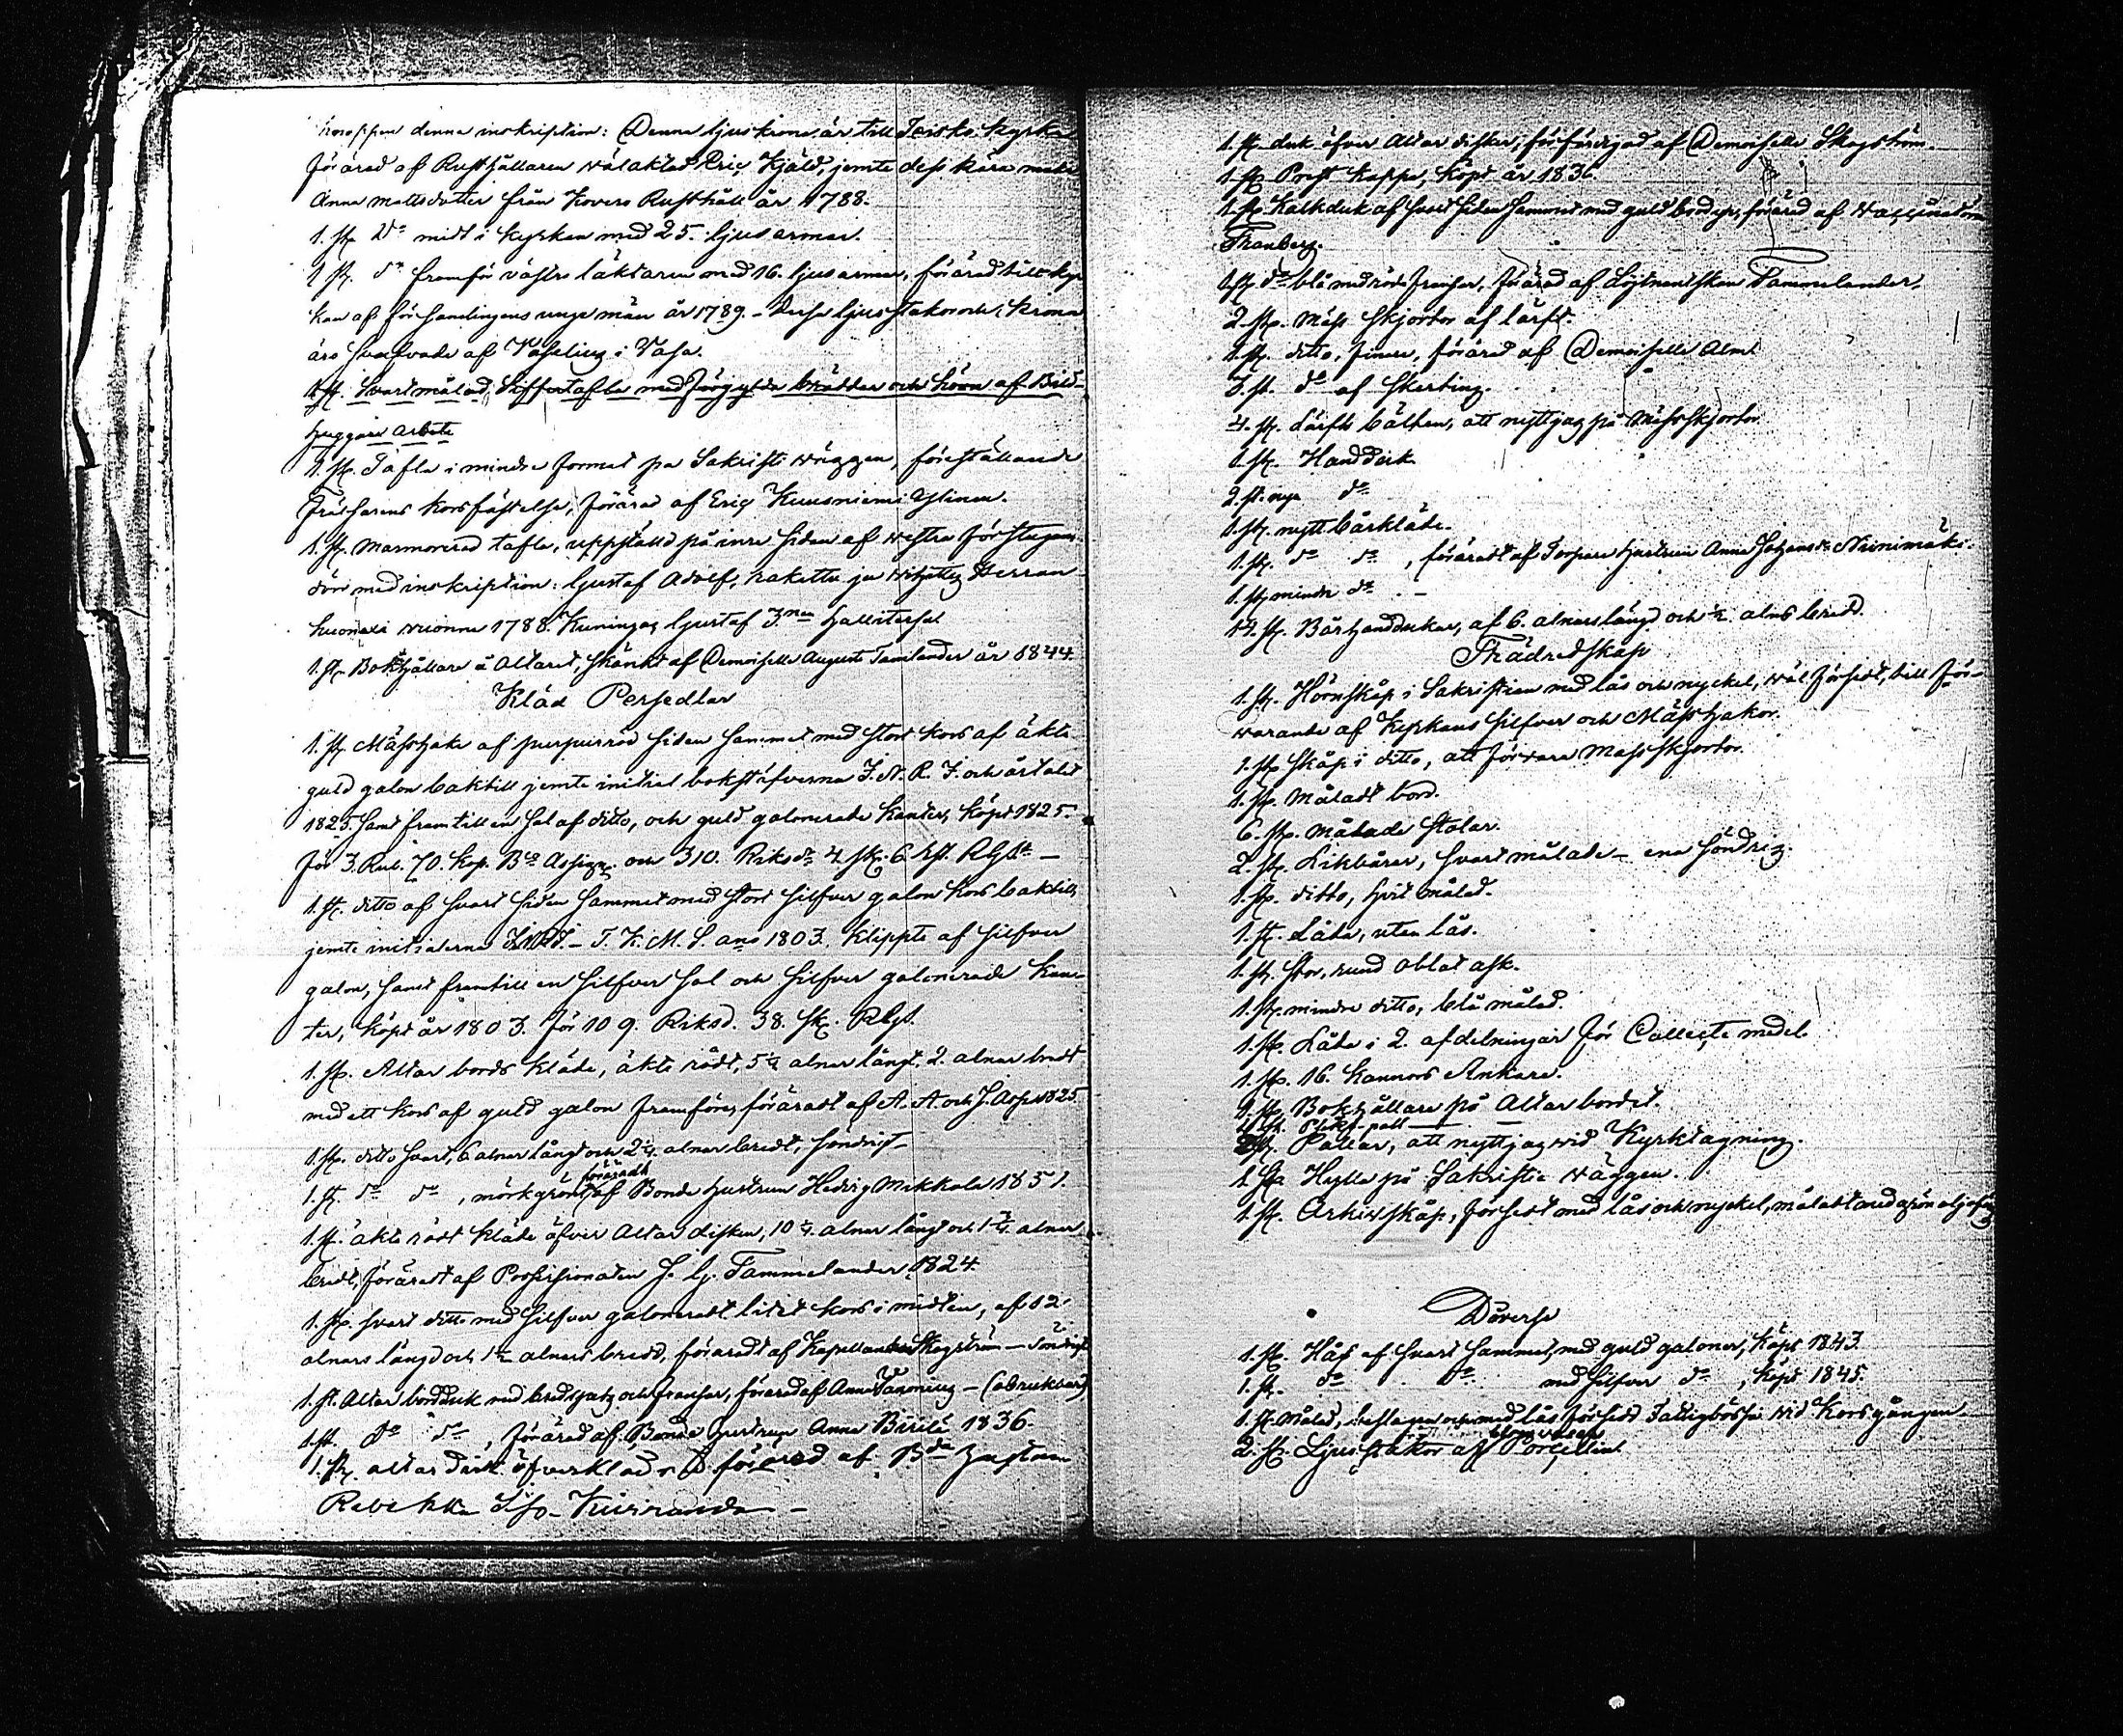 denna inskription: Denna ljuskrona är till Teisko kyrka
förärad af Rusthållaren wälaktad Eric Kjäld, jemte dess kära maka
Anna Mattsdotter från Kovero Rusthåll år 1788.
1. st. Do midt i kyrkan med 25. ljusarmar.
1 st. do framför västra läktaren med 16. ljusarmar, förärad till kyr
kan af församlingens unga män år 1789. - Dessa ljusstakar och kronor
äro af i Vasa.
1 st. Svartmålad Siffertafla med förgyllda bräddar och krona af Bild-
huggare arbete
1. st. Tafla i mindre format på Sakristi wäggen, föreställande
Frälsarens korsfästelse, förärad af Eric Kuusniemi Ylinen.
1. st. Marmorerad tafla, uppställd på inre sidan af westra förstugans
dörr med inskription: Gustaf Adolf, rakettu ja wihitty Herran
huonexi wuonna 1788. Kuningas Gustaf 3nen hallitessa
1. st. Bokhållare å Altaret, skänkt af Demoiselle Augusta Tamlander år 1844.
Kläd Persedlar
1. st. Mässhake af purpurröd siden sammet med stort kors af äkta
guld galon baktill jemte initial bokstäfverna I. N. R. I. och årtalet
1825. samt framtill en sol af ditto, och guld galonerade kanter, köpt 1825.
för 3. Rub. 70. kop. Bco Assign. och 310. Riksdr 4. sk. 6. rst. Rgst -
1. st. ditto af svart siden sammet med stort silfver galon kors baktill,
jemte initialerna - I. K. M. S. ano 1803. klippte af silfver
galon, samt framtill en silfver sol och silfver galonerade kan-
ter, köpt år 1803. för 109. Riksd. 38. sk. Rgst.
1. st. Altar bords kläde, äkta rödt, 5 1/4 alnar långt, 2. alnar bredt
med ett kors af guld galon framföre, förärad af A. A. och J. Asp 1825.
1. st. ditto svart, 6 alnar långt och 2 1/4 alnar bredt, söndrigt -
1. st. do do, mörkgrönt, föräradt af Bonde hustrun Hedvig Mikkola 1851.
1. st. äkta rödt kläde öfver Altar disken, 10 1/4 alnar långt och 1 3/4 alnar
bredt, förärat af Possessionaten J. G. Tammelander 1824.
1. st. svart ditto med silfver galoneradt litet kors i midten, af 12
alnars längd och 1 1/2 alnars bredd, förärad af Kapellanskan Skogström - Söndrigt
1. st. Altar bordduk med bred spets och fransar, förärad af Anna - (obrukbar)
1. st. do do, förärad af Bonde hustrun Anna Birilä 1836.
1. st. altar disk öfverkläd förärad af Bde hustrun
Rebekka -
1. st. duk öfver Altar disken, förfärdigad af Demoiselle Skogström.
1. st. Prest kappa, köpt år 1836
1. st. Kalkduk af svart siden sammet med guld broderi, förärad af
Franberg.
1. st. do blå med röda fransar, förärad af Löjtnantskan Tammelander.
2. st. Mäss skjortor af lärft.
1. st. ditto, finare, förärad af Demoiselle Alm
3. st. do af skerting.
4. st. Lärfts bälten, att nyttjas på Mässskjortor
1. st. Handduk
2. st. nya do
1. st. nytt bårkläde.
1. st. do do, förärat af Torpare hustrun Anna Johansdr Niinimäki.
1. st. mindre do. -
14. st. Bårhanddukar, af 6. alnars längd och 1/2 alns bredd.
Trädredskap
1. st. Hörnskåp i Sakristian med lås och nyckel, wäl försedt, till för-
warande af Kyrkans silfver och Mässhakor.
1. st. skåp i ditto, att förvara Mässskjortor.
1. st. Måladt bord.
6. st. målade stolar.
2. st. Likbårar, svart målade - ena söndrig.
1. st. ditto, hvit målad.
1. st. Låda, utan lås.
1. st. stor, rund oblat ask.
1. st. mindre ditto, blå målad.
1. st. Låda i 2. afdelningar för Collecte medel.
1. st. 16. kannors Ankare.
1. st. Bokhållare på Altarbordet.
1. st. Plikt-pall -
st. Pallar, att nyttjas wid Kyrktagning.
1. st. Hylla på Sakristie wäggen.
1. st. Arkivskåp, försedt med lås och nyckel, måladt med grön oljefärg
Diverse
1. st. Håf af svart sammet, med guld galoner, köpt 1843.
1. st. do do med silfver do, köpt 1845.
1. st. Målad, beslagen och med lås försedd Fattigbössa wid Korsgången.
2. st. Ljusstakar af Porcellin